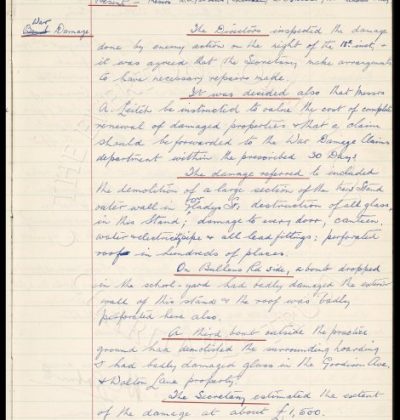 Present -
War
Damage.
The Directors inspected the damage
done by enemy action on the night of the 18th inst, &
it was agreed that the Secretary make arrangements
to have necessary repairs made.
It was decided also that Messrs
A. Leitch be instructed to value the cost of complete
renewal of damaged properties & that a claim
should be forwarded to the War Damage Claims
department within the prescribed 30 Days.
The damage referred to included
the demolition of a large section of the New Stand
outer wall in Gladys St. destruction of all glass,
in this Stand; damage to every door, canteen,
water & electricity pipe & all lead fittings: perforated
roof in hundreds of places.
On Bullens Rd side, a bomb dropped
in the school-yard had badly damaged the exterior
wall of this stand & the roof was badly
perforated here also.
A third bomb outside the practice
ground had demolished the surrounding hoarding
& had badly damaged glass in the Goodison Ave,
& Walton Lane property.
The Secretary estimated the extent
of the damage at about £1,500.